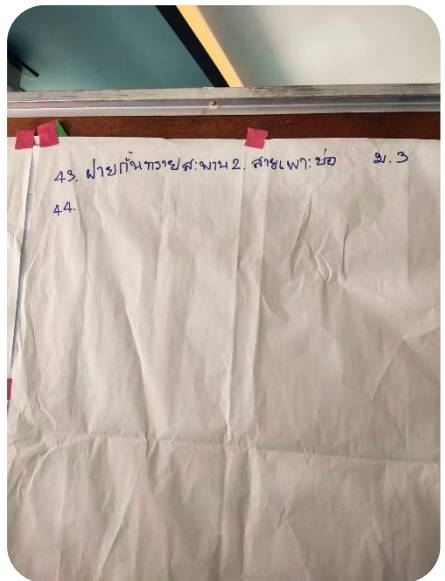 43. ฝายกั้นทรายสะพาน 2. สายเพาะบ่อ ม.3
44.